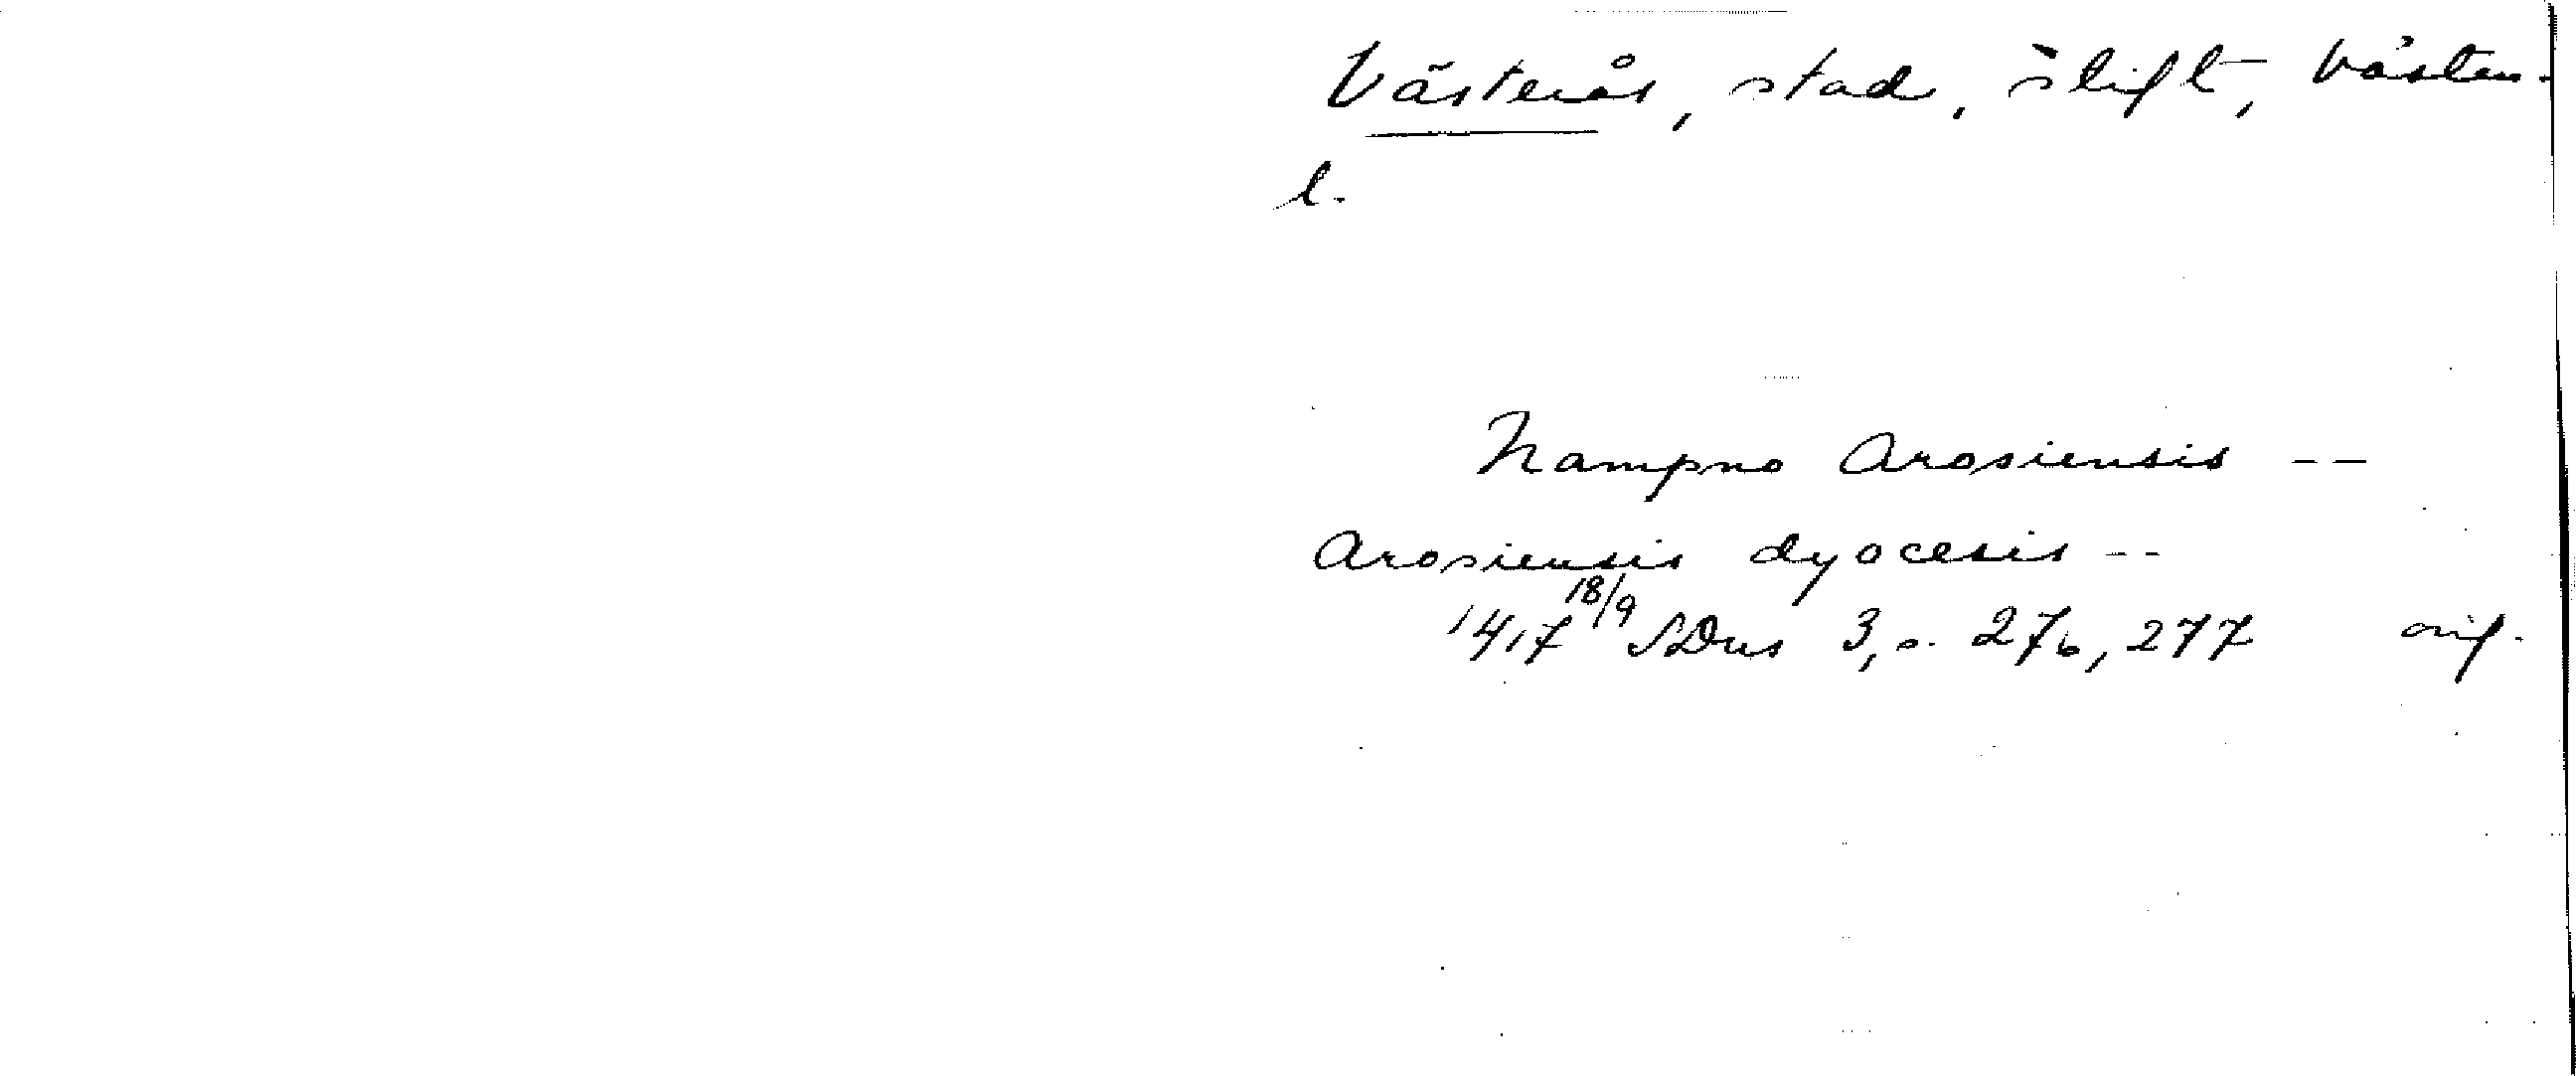 Västerås, stad, stift, Västm.
l.
Nampno Arosiensis --
Arosiensis dyocesis --
1417 18/9 SDns 3, s. 276, 277 orig.